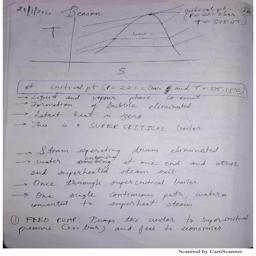 Benson
critical pt.
T
S
at critical pt (P = 221.2 bar and T =
→ Liquid and vapour phase co-exist
→ Formation of bubble eliminated
→ Latent heat is zero
→ This is a SUPER CRITICAL boiler
→ Steam separating drum eliminated
→ water entering at one end and other
end superheated steam exit
→ Once through supercritical boiler
→ One single continuous path, water
converted to superheat steam
① FEED PUMP: Pumps the water to supercritical
pressure bar) and feed to economiser
Scanned by CamScanner